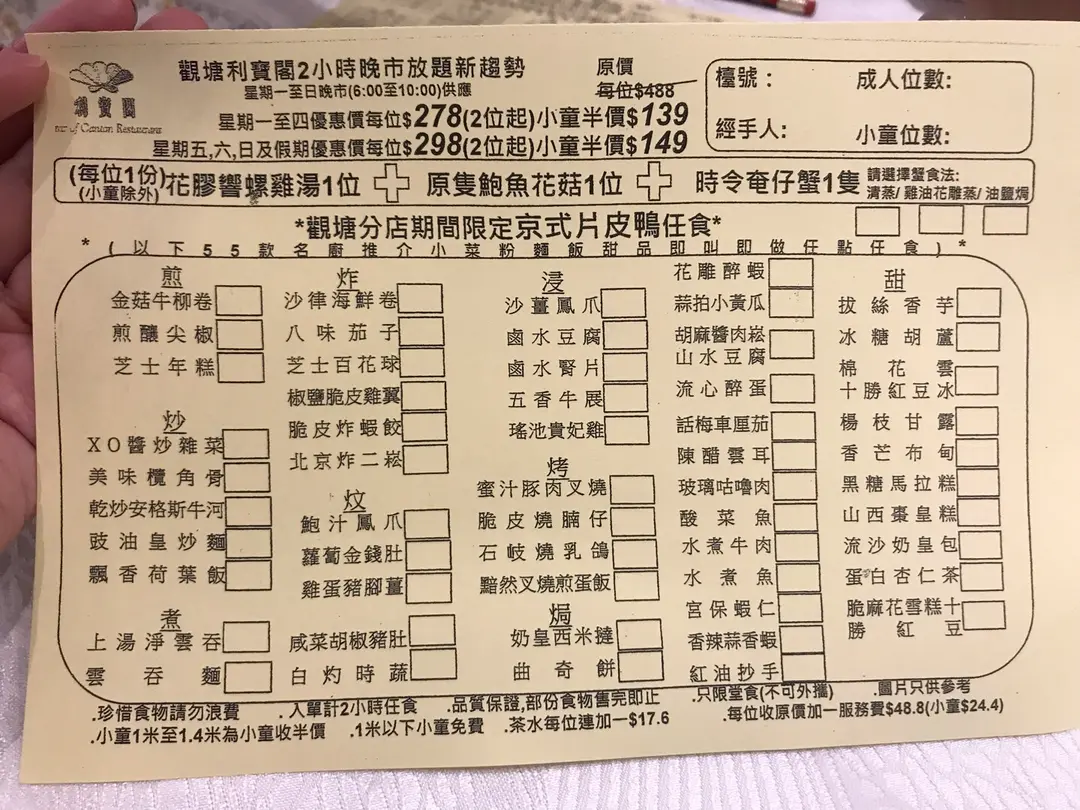 利寶閣
Star of Canton Restaurant
觀塘利寶閣2小時晚市放題新趨勢
星期一至日晚市(6:00至10:00)供應
原價
每位$488
星期一至四優惠價每位$278(2位起)小童半價$139
星期五,六,日及假期優惠價每位$298(2位起)小童半價$149
檯號：
成人位數:
經手人:
小童位數:
(每位1份)
(小童除外)
花膠響螺雞湯1位
原隻鮑魚花菇1位
時令奄仔蟹1隻
請選擇蟹食法:
清蒸/ 雞油花雕蒸/ 油鹽焗
*觀塘分店期間限定京式片皮鴨任食*
*(以下55款名廚推介小菜粉麵飯甜品即叫即做任點任食)*
煎
金菇牛柳卷
煎釀尖椒
芝士年糕
炒
XO醬炒雜菜
美味欖角骨
乾炒安格斯牛河
豉油皇炒麵
飄香荷葉飯
煮
上湯淨雲吞
雲吞麵
炸
沙律海鮮卷
八味茄子
芝士百花球
椒鹽脆皮雞翼
脆皮炸蝦餃
北京炸二崧
炆
鮑汁鳳爪
蘿蔔金錢肚
雞蛋豬腳薑
咸菜胡椒豬肚
白灼時蔬
浸
沙薑鳳爪
鹵水豆腐
鹵水腎片
五香牛展
瑤池貴妃雞
烤
蜜汁豚肉叉燒
脆皮燒腩仔
石岐燒乳鴿
黯然叉燒煎蛋飯
焗
奶皇西米撻
曲奇餅
花雕醉蝦
蒜拍小黃瓜
胡麻醬肉崧
山水豆腐
流心醉蛋
話梅車厘茄
陳醋雲耳
玻璃咕嚕肉
酸菜魚
水煮牛肉
水煮魚
宮保蝦仁
香辣蒜香蝦
紅油抄手
甜
拔絲香芋
冰糖胡蘆
棉花雲
十勝紅豆冰
楊枝甘露
香芒布甸
黑糖馬拉糕
山西棗皇糕
流沙奶皇包
蛋白杏仁茶
脆麻花雪糕十
勝紅豆
.珍惜食物請勿浪費
.入單計2小時任食
.品質保證,部份食物售完即止
.只限堂食(不可外攜)
.圖片只供參考
.小童1米至1.4米為小童收半價
.1米以下小童免費
.茶水每位連加一$17.6
.每位收原價加一服務費$48.8(小童$24.4)